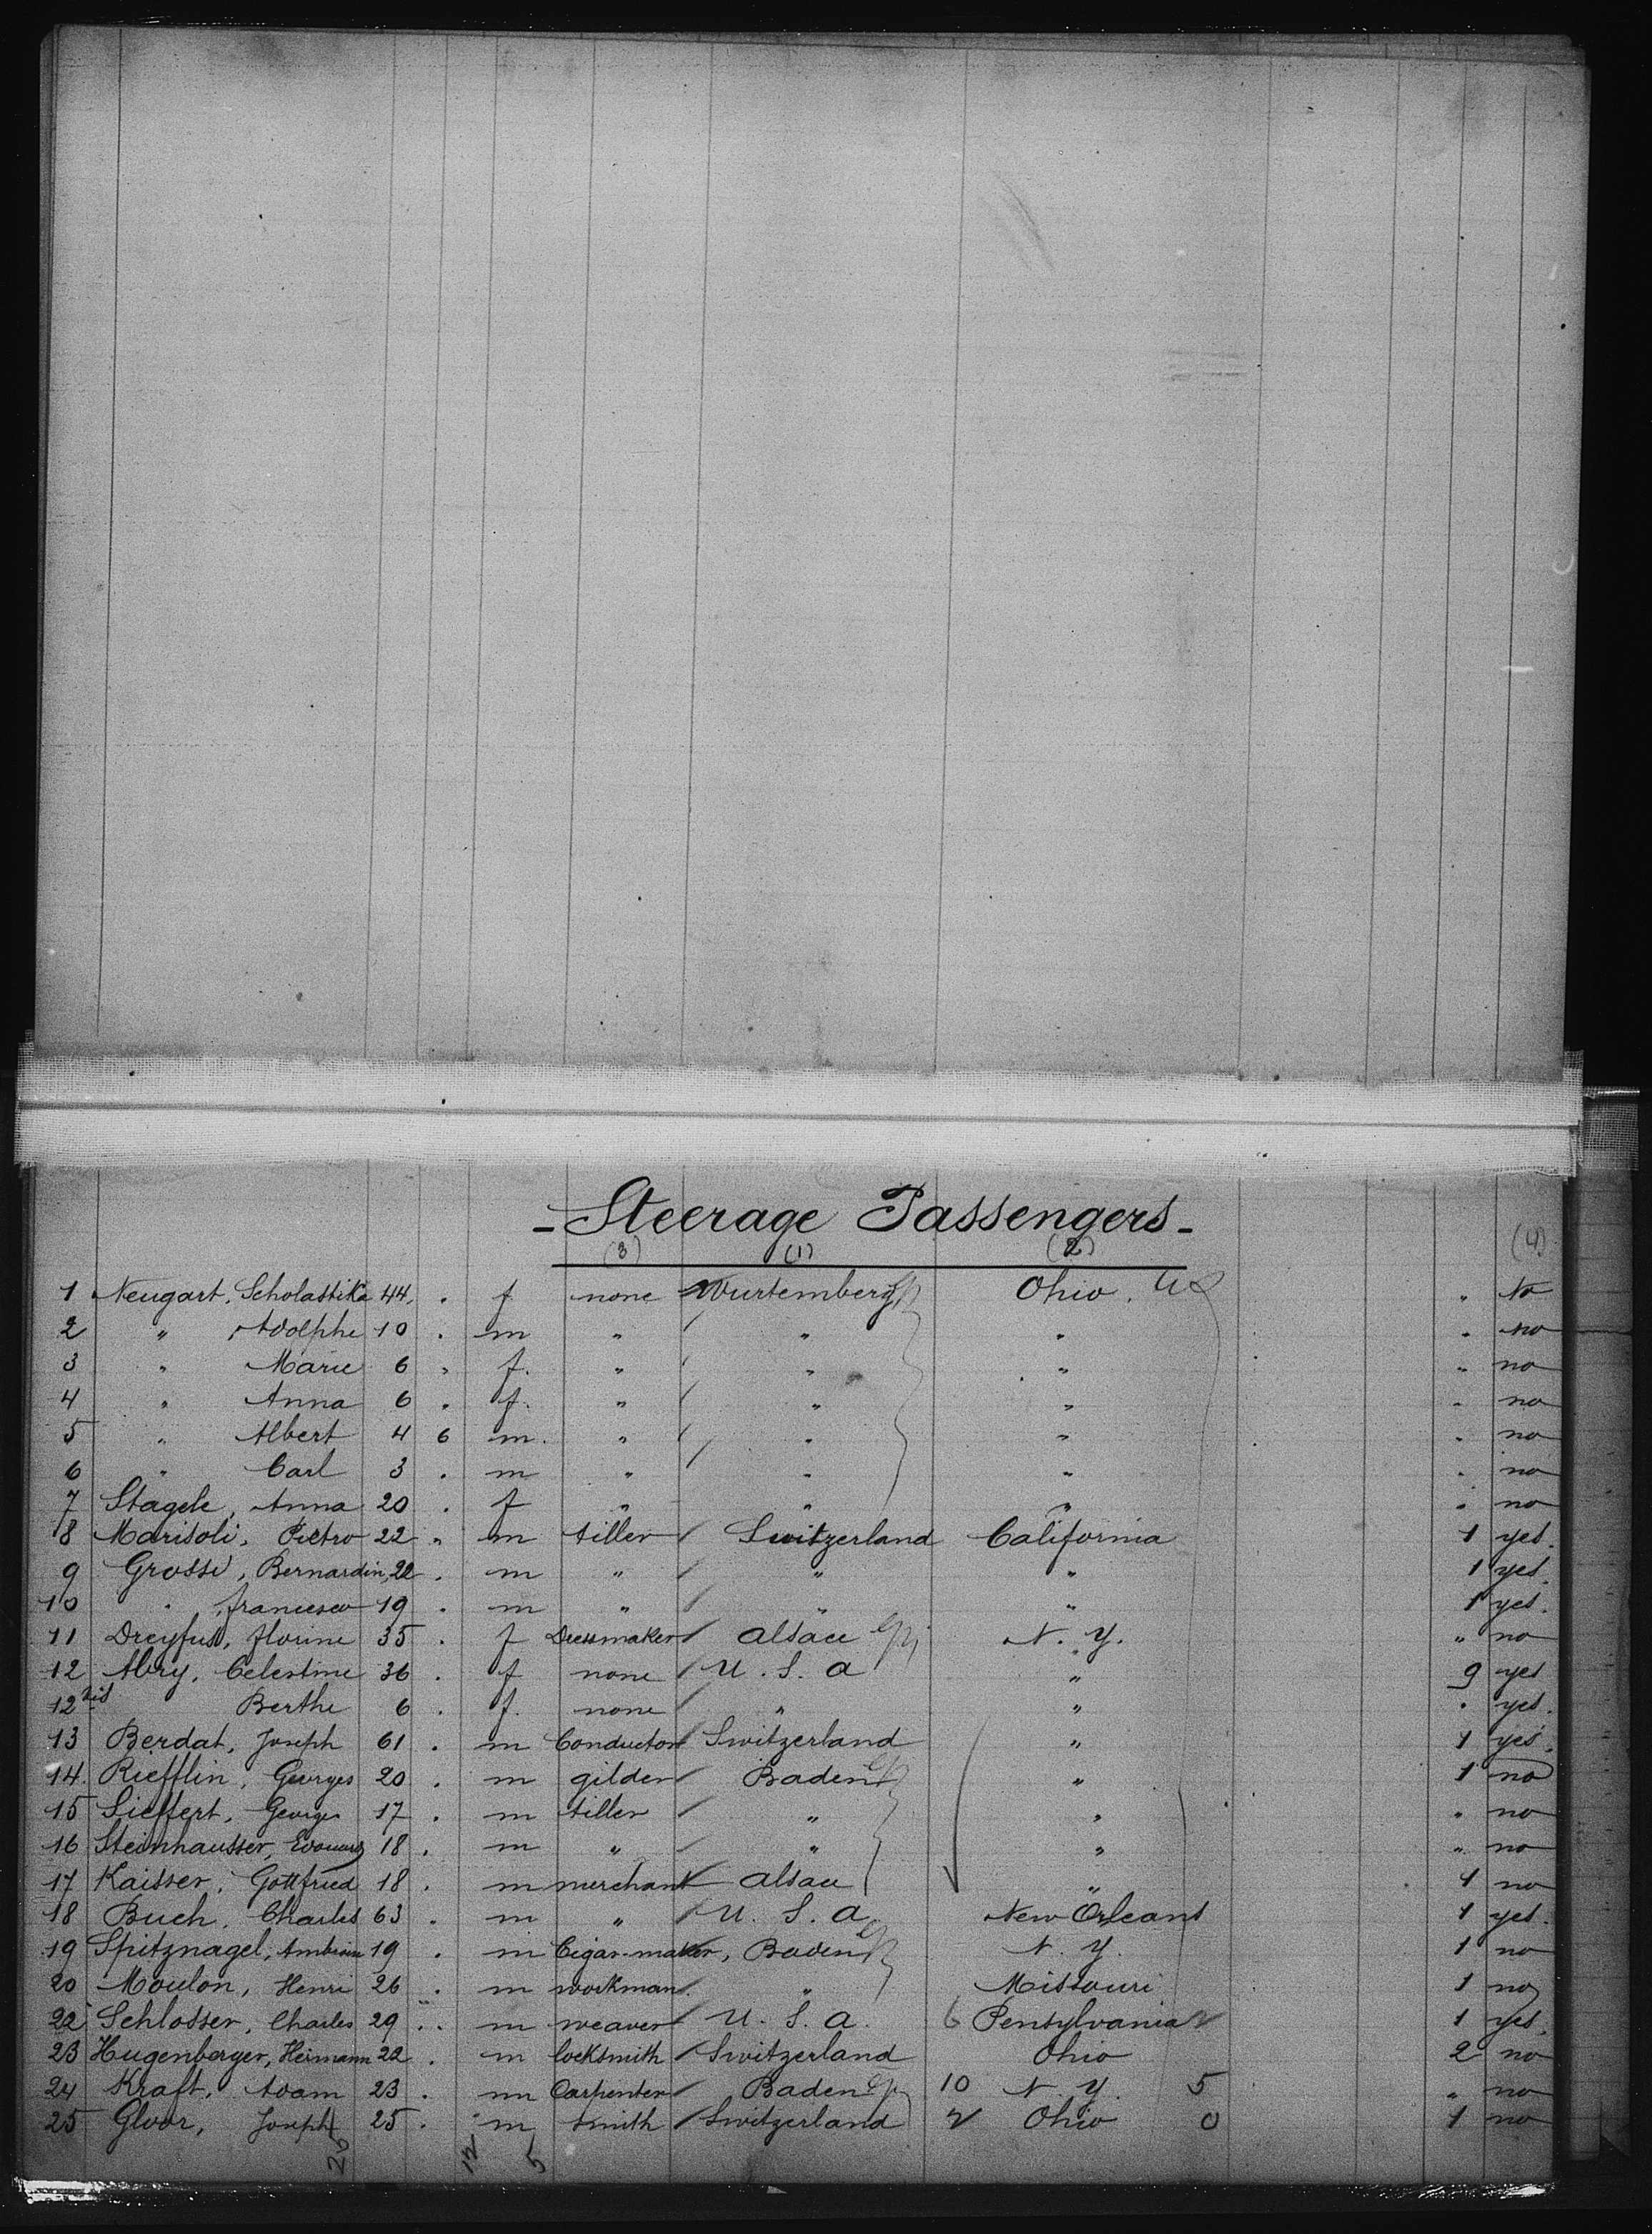 - Steerage Passengers -
(3) (1) (2) (4)
1 Neugart, Scholastika 44 . f none Wurtemberg Ohio. U S " No
2 " Adolphe 10 . m " " " " no
3 " Marie 6 " f. " " " " no
4 " Anna 6 " f. " " " " no
5 " Albert 4 6 m. " " " " no
6 " Carl 3 . m " " " " no
7 Stagele, Anna 20 . f " " " " no
8 Marisoli, Pietro 22 " m tiller Switzerland California 1 yes.
9 Grossi, Bernardin, 22 . m " " " 1 yes.
10 " francesco 19 . m " " " 1 yes.
11 Dreyfuss, florine 35 . f Dressmaker Alsace N. Y. " no
12 Abry, Celestine 36 . f none U. S. A " 9 yes
12 bis Berthe 6 . f. none " " " yes.
13 Berdat, Joseph 61 . m Conductor Switzerland " 1 yes.
14. Riefflin, Georges 20 . m gilder Baden " 1 no
15 Sieffert, George 17 . m tiller " " " no
16 Steinhausser, Edouard 18 . m " " " " no
17 Kaisser, Gottfried 18 . m merchant Alsace " 1 no
18 Buch, Charles 63 . m " U. S. A. New Orleans 1 yes.
19 Spitznagel, 19 . m Cigar-maker, Baden N. Y. 1 no
20 Moulon, Henri 26 . m workman. " Missouri 1 no
22 Schlosser, Charles 29 . m weaver U. S. A. 6 Pensylvania 1 yes.
23 Hugenberger, Hermann 22 . m locksmith Switzerland Ohio 2 no
24 Kraft, Adam 23 . m Carpenter Baden 10 N. Y. 5 " no
25 Gloor, Joseph 25 . m smith Switzerland 2 Ohio 0 1 no
12 5